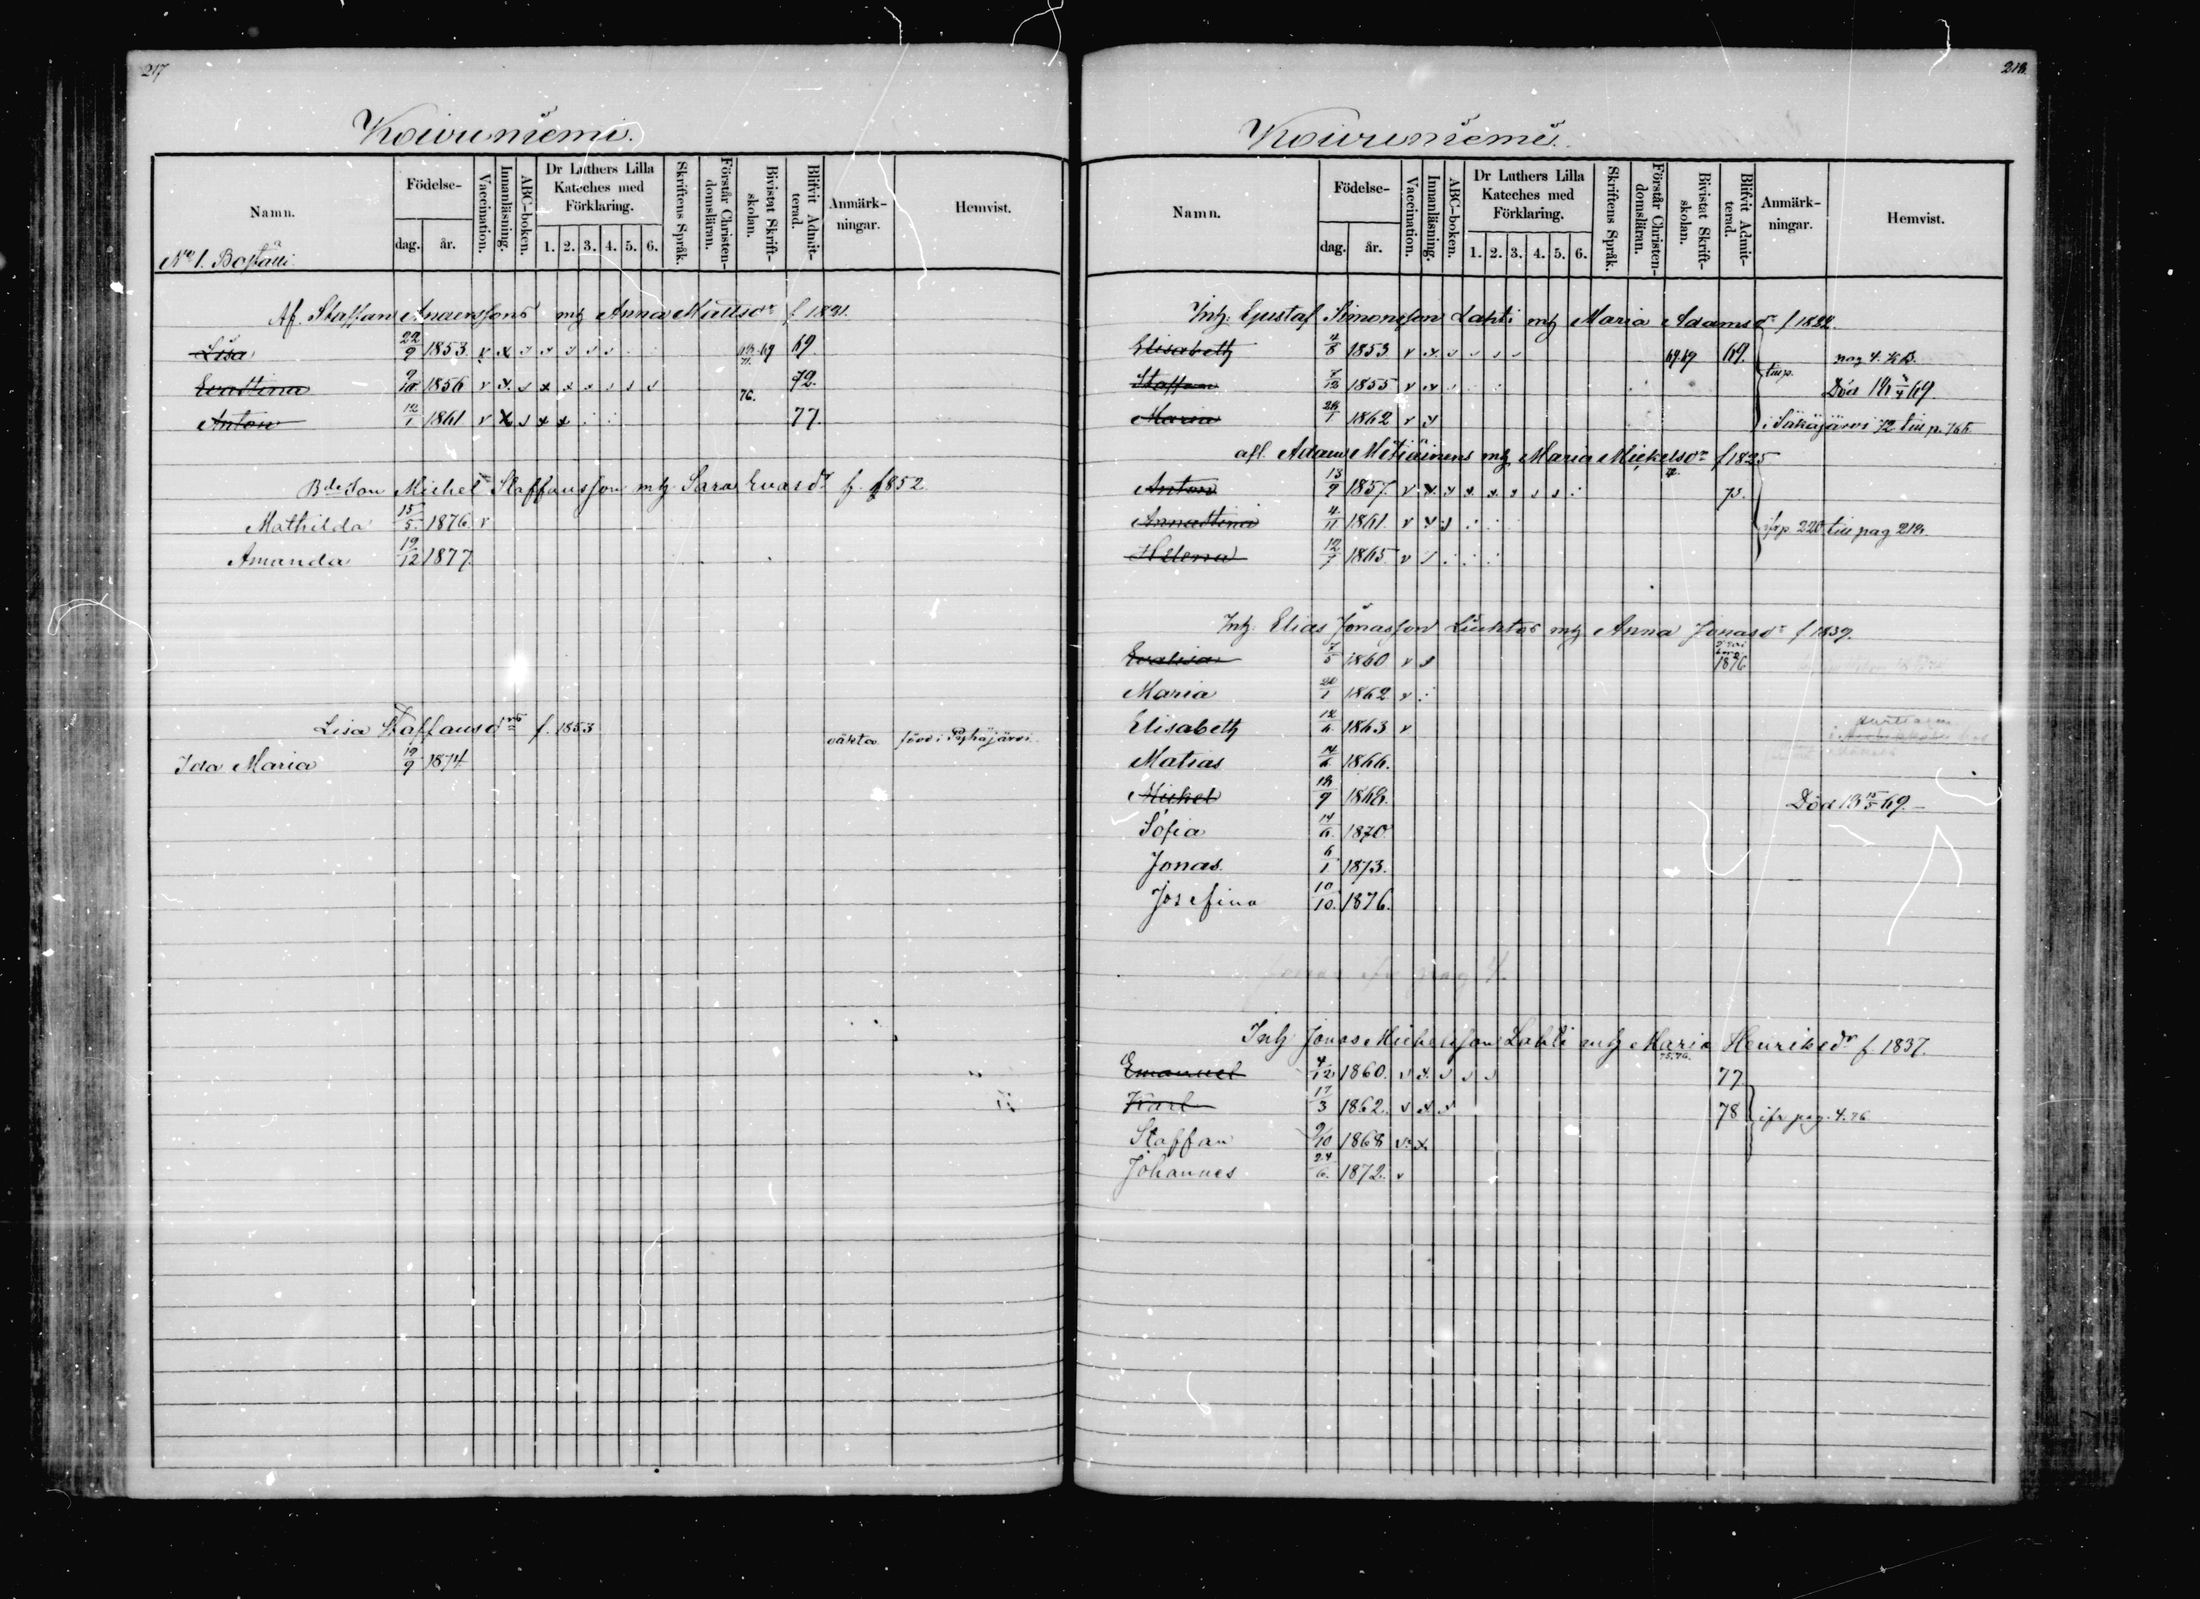 217
Koiruniemi.
Namn.
Födelse-
dag.
år.
Vaccination.
Innanläsning.
ABC-boken.
Dr Luthers Lilla
Kateches med
Förklaring.
1. 2. 3. 4. 5. 6.
Skriftens Språk.
Förstår Christen-
domsläran.
Bivistat Skrift-
skolan.
Blifvit Admit-
terad.
Anmärk-
ningar.
Hemvist.
No 1.
Af. Staffan Anderssons mtg Anna Mattsdr f 1821.
Lisa 22/9 1853 v x 69 69.
Evastina 9/10 1856 v x 76. 72.
Anton 12/1 1861 v x 77.
Michel Staffansson mtg Sara Evasdr f. 1852
Mathilda 15/5 1876 v
Amanda 19/12 1877.
Lisa Staffansdr f. 1853
oäkta född i Pyhäjärvi
Ida Maria 19/9 1874
218.
Koiruniemi.
Namn.
Födelse-
dag.
år.
Vaccination.
Innanläsning.
ABC-boken.
Dr Luthers Lilla
Kateches med
Förklaring.
1. 2. 3. 4. 5. 6.
Skriftens Språk.
Förstår Christen-
domsläran.
Bivistat Skrift-
skolan.
Blifvit Admit-
terad.
Anmärk-
ningar.
Hemvist.
Inh. Gustaf Simonsson Lahti mtg Maria Adamsdr f 1822.
Elisabeth 4/8 1853 v x 69 69.
Staffan 7/12 1855 v x Död 69.
Maria 1862 v x i Säkäjärvi 72
afl. Adam Metiäinens mtg Maria Mickelsdr f 1825
Anton 13/9 1857. v x
Annastina 4/11 1861. v x 220 till pag
Helena 12/7 1865 v
Inh. Elias Jonasson mtg Anna Jonasdr f 1839.
Evalisa 7/5 1860 v 1876
Maria 20/1 1862 v
Elisabeth 1863 v
Matias 1866.
Mickel 1868. Död 18 15/5 69.
Sofia 1870
Jonas. 6/1 1873.
Josefina 10/10. 1876.
pag 4.
Inh Jonas Michelsson Lahti mtg Maria Henriksdr f 1837.
75.76.
Emanuel 4/12 1860. v x 77
Karl 17/3 1862. v x 78 ifr pag. 4. 76
Staffan 9/10 1868 v x
Johannes 24/6. 1872. v